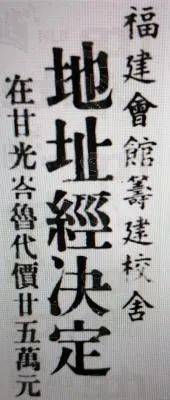 福建會館籌建校舍
地址經决定
在甘光峇魯代價廿五萬元